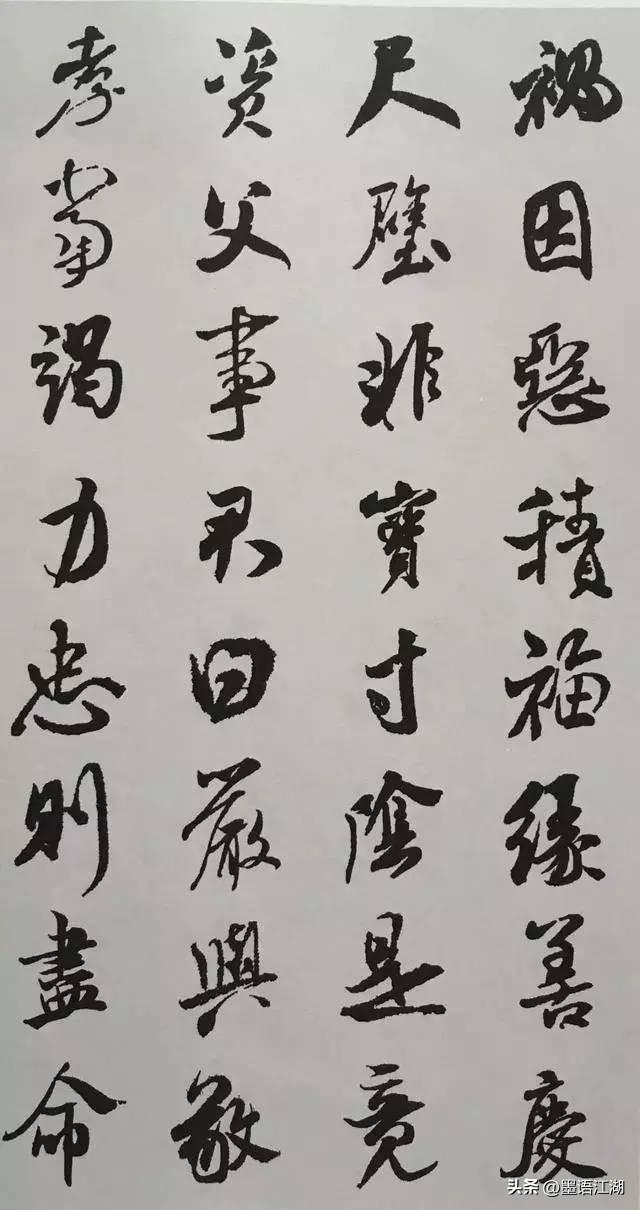 禍因惡積福緣善慶
尺璧非寶寸陰是竟
資父事君曰嚴與敬
孝當竭力忠則盡命
头条 @墨语江湖